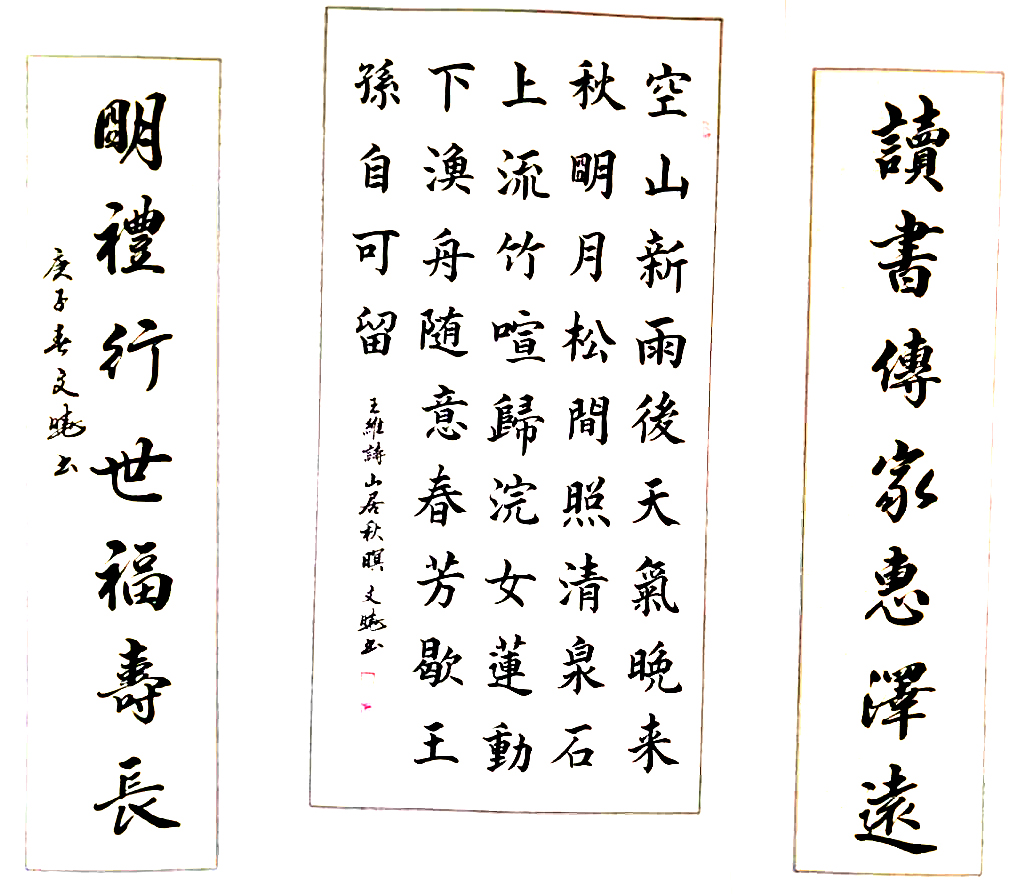 讀書傳家惠澤遠
空山新雨後天氣晚来
秋明月松間照清泉石
上流竹喧歸浣女蓮動
下漁舟随意春芳歇王
孫自可留
王維詩山居秋暝 文晓书
明禮行世福壽長
庚子春文晓书